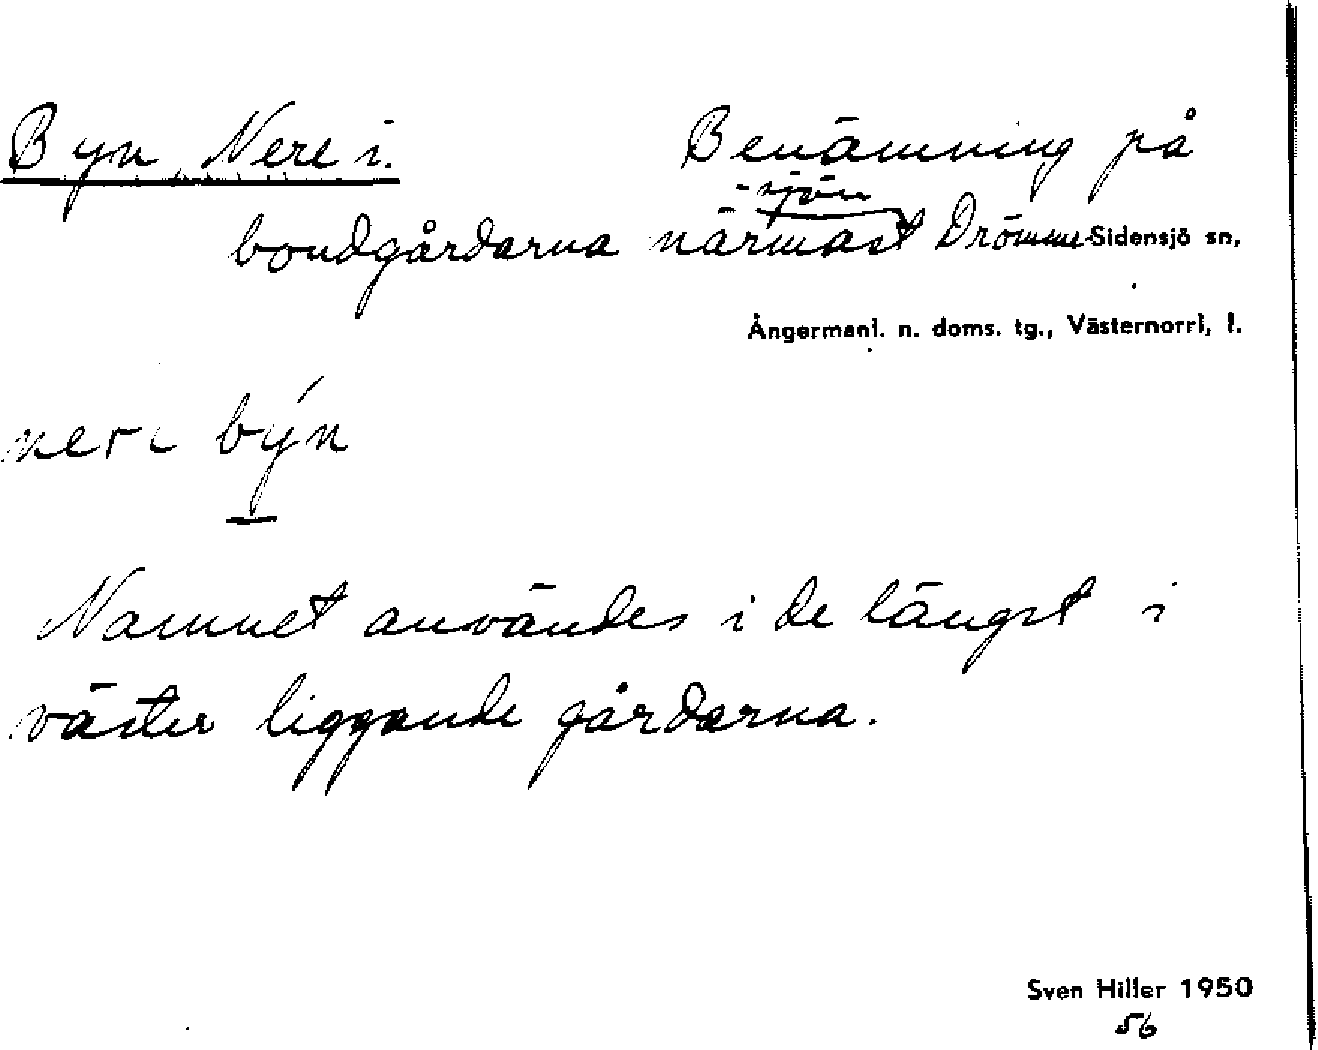 Byn, Nere i. Benämning på
sjön
bondgårdarna närmast Drömme Sidensjö sn,
Ångermanl. n. doms. tg., Västernorrl, l.
neri býn
Namnet användes i de längst i
väster liggande gårdarna.
Sven Hiller 1950
56